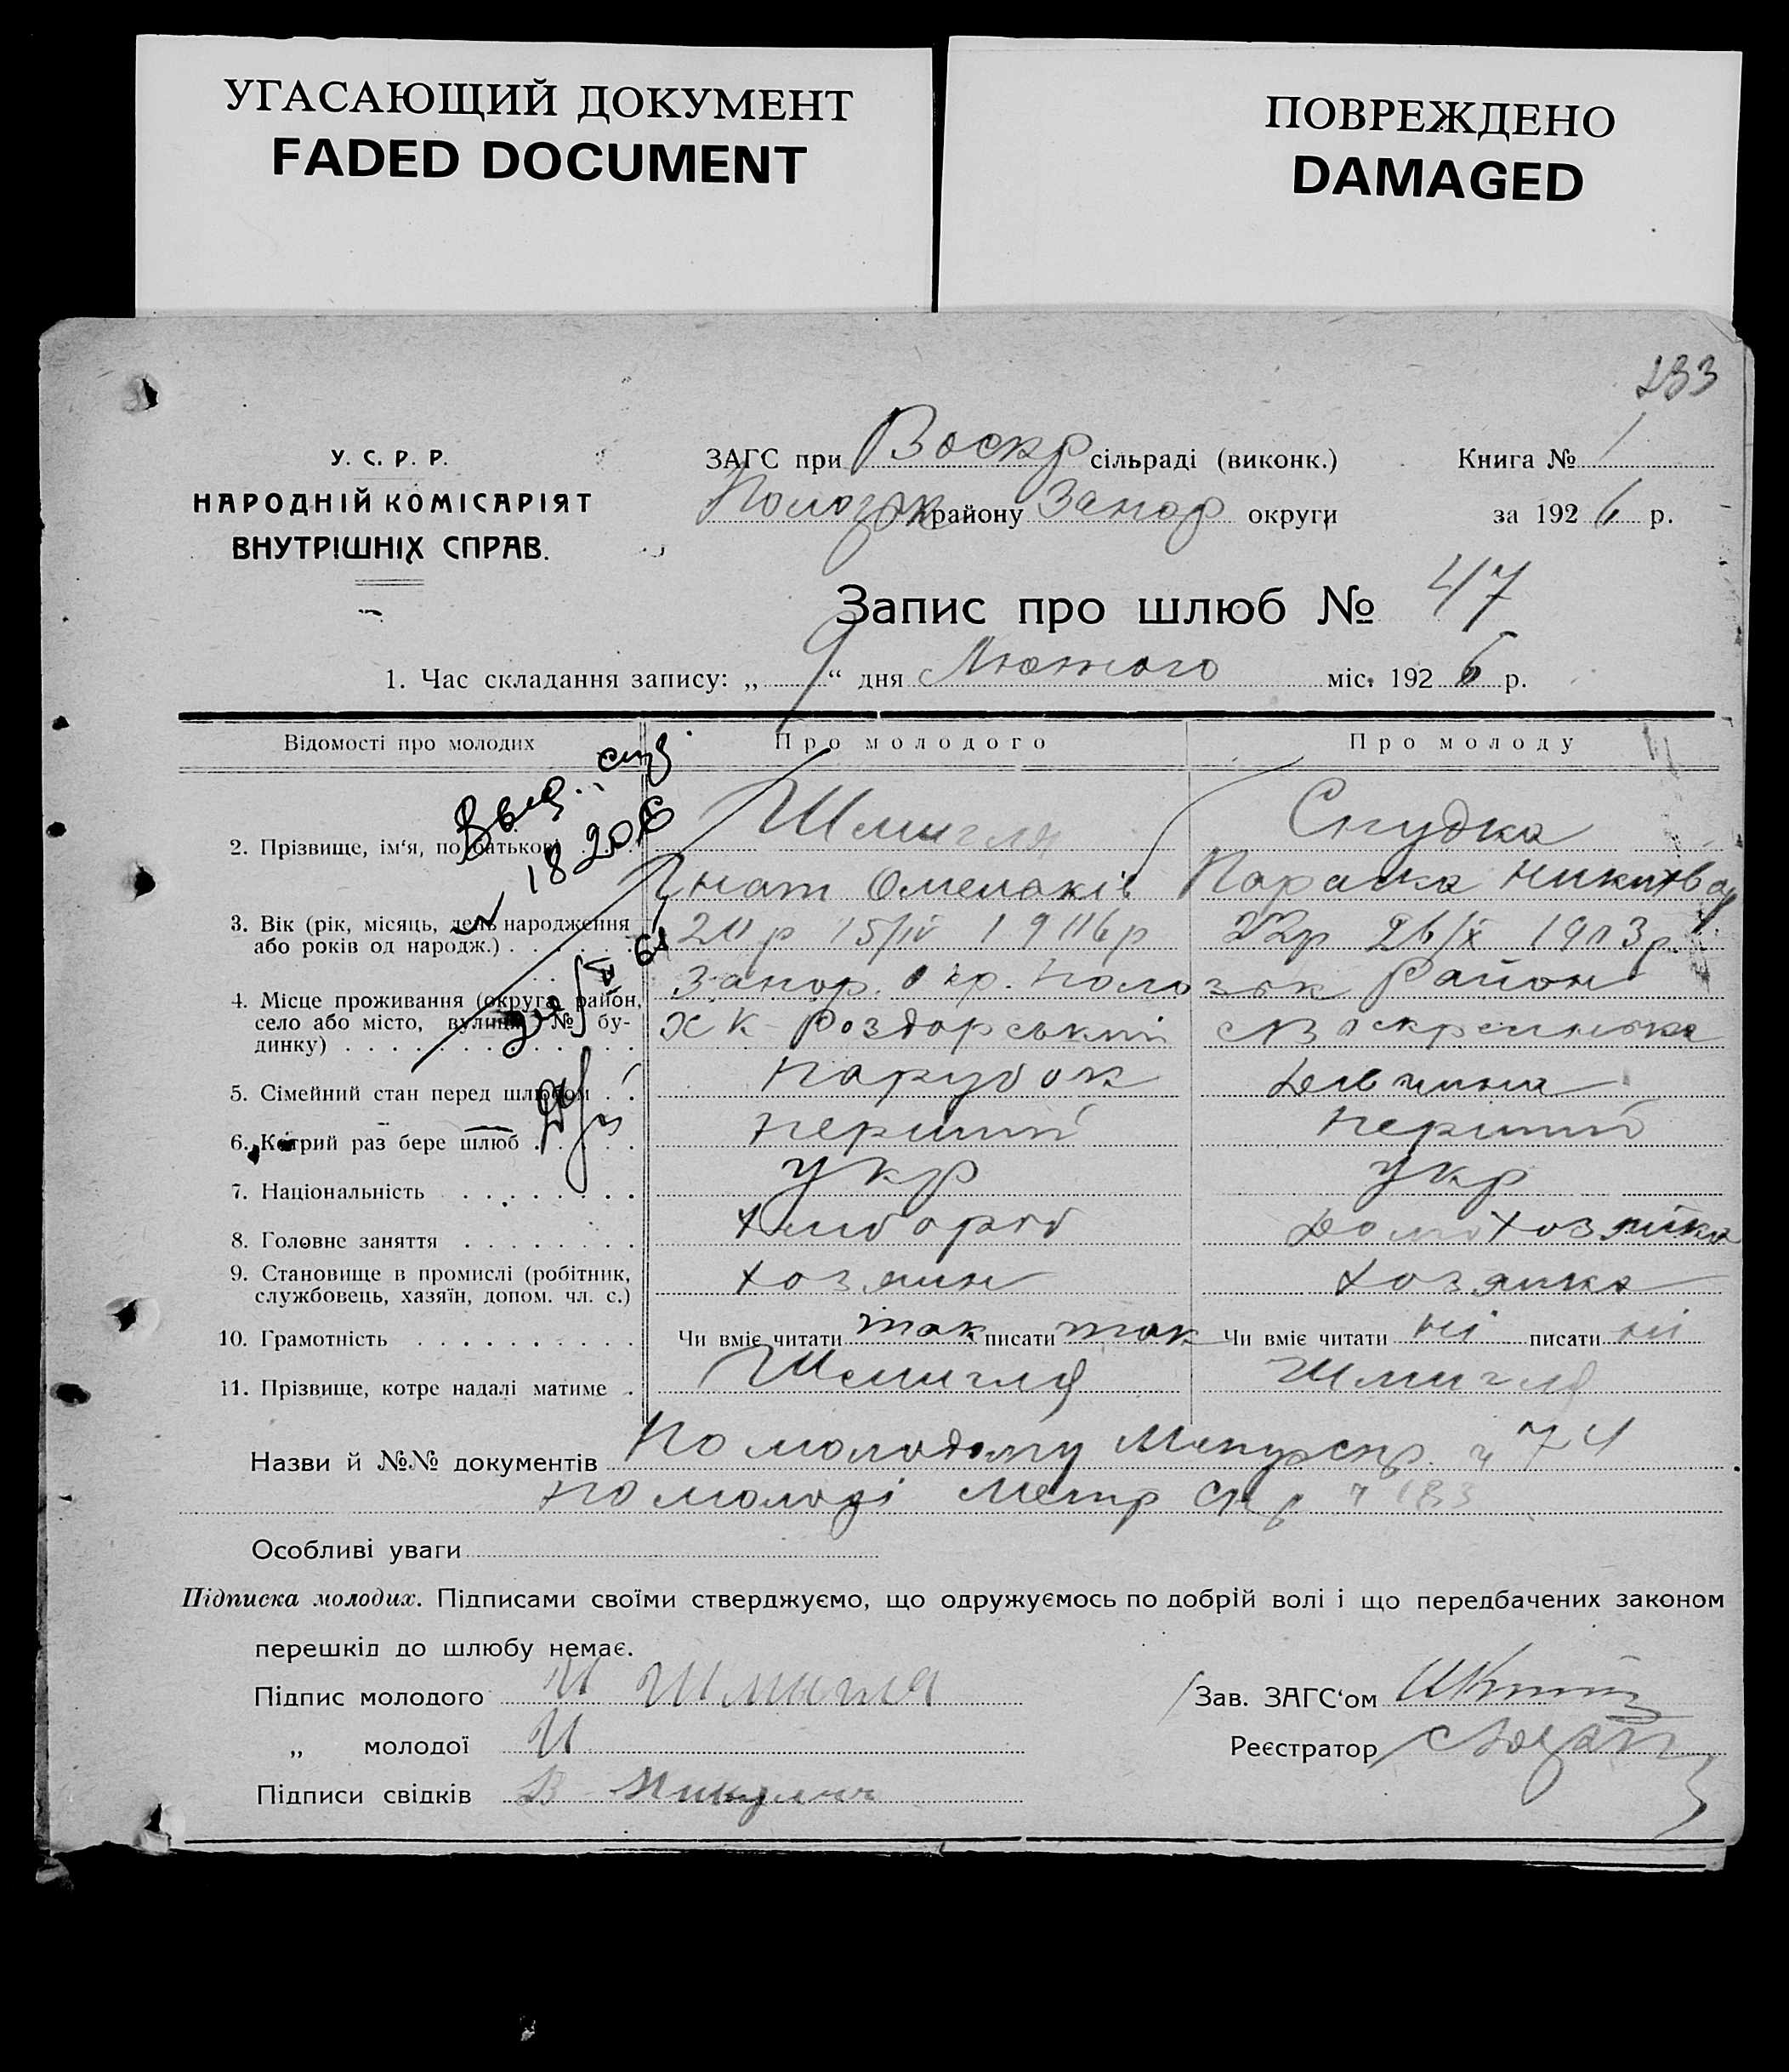 УГАСАЮЩИЙ ДОКУМЕНТ
FADED DOCUMENT
ПОВРЕЖДЕНО
DAMAGED
233
У. С. Р. Р.
НАРОДНІЙ КОМІСАРІЯТ
ВНУТРІШНІХ СПРАВ.
ЗАГС при Воскр сільраді (виконк.)
Книга № 1
району Запор округи
за 1926 р.
Запис про шлюб № 47
1. Час складання запису: „ 9 “ дня Лютого міс. 1926 р.
Відомості про молодих
Про молодого
Про молоду
2. Прізвище, ім‘я, по батькові
Шмигля
Гнат Омельків
Параска Никит
3. Вік (рік, місяць, день народження
або років од народж.)
20 р 15/IV 1906 р
22 р 26/X 1903 р.
4. Місце проживання (округа, район,
село або місто, вулиця, № бу-
динку)
Запор. окр. Район
Роздорський
5. Сімейний стан перед шлюбом
парубок
дівчина
6. Котрий раз бере шлюб
перший
перший
7. Національність
укр
укр
8. Головне заняття
хлібороб
домохозяйка
9. Становище в промислі (робітник,
службовець, хазяїн, допом. чл. с.)
хозяин
хозяйка
10. Грамотність
Чи вміє читати так писати так
Чи вміє читати ні писати ні
11. Прізвище, котре надалі матиме
Шмигля
Шмигля
Назви й №№ документів По молодому 74
по молодій Метр 183
Особливі уваги
Підписка молодих. Підписами своїми стверджуємо, що одружуємось по добрій волі і що передбачених законом
перешкід до шлюбу немає.
Підпис молодого И Шмигля
Зав. ЗАГС‘ом
„ молодої
Реєстратор
Підписи свідків